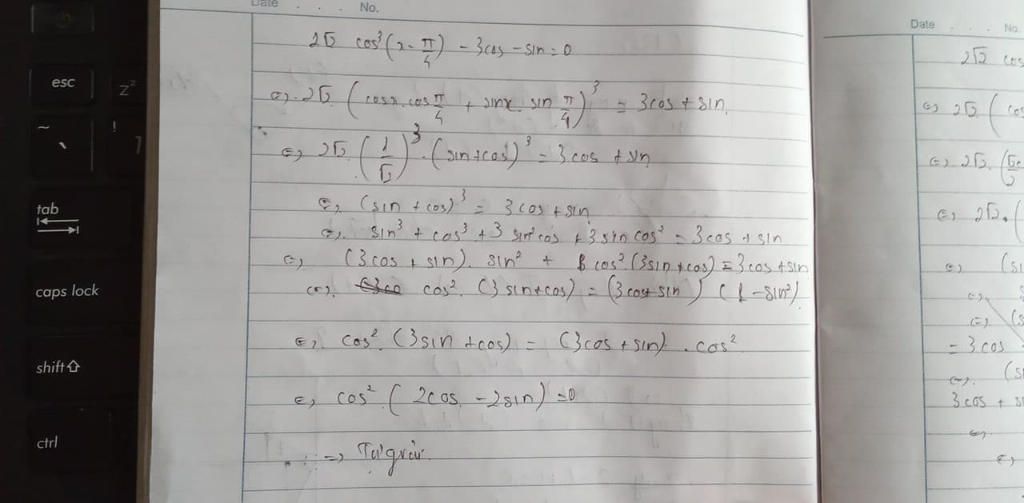 Date . . . No.
2√2 cos³(x - π/4) - 3cos - sin = 0
⇔ 2√2 (cosx.cos π/4 + sinx.sin π/4)³ = 3cos + sin
⇔ 2√2 (1/√2)³.(sin+cos)³ = 3cos + sin
⇔ (sin + cos)³ = 3cos + sin
⇔ sin³ + cos³ + 3 sin²cos + 3 sin cos² = 3cos + sin
⇔ (3cos + sin). sin² + cos².(3sin + cos) = 3cos + sin
⇔ cos². (3sin+cos) = (3cos+sin) (1 - sin²)
⇔ cos². (3sin + cos) = (3cos + sin) . cos²
⇔ cos² (2cos - 2sin) = 0
=> Tự giải.
esc
z²
~
`
!
1
tab
caps lock
shift
ctrl
Date . . . No.
2√2 cos
⇔ 2√2 (co
⇔ 2√2.
⇔ 2√2.(
⇔ (si
⇔
⇔ (s
= 3cos
⇔ (si
3cos + s
⇔
⇔